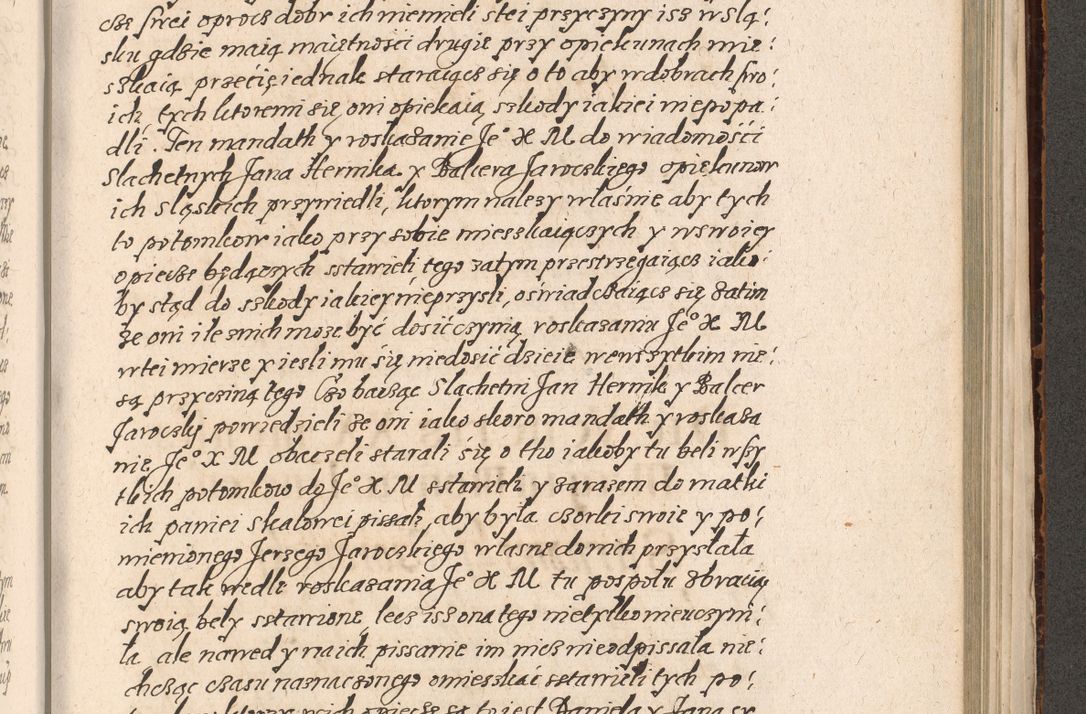 cze swei oprocz dobr ich niemieli stei przyczyny isz w Slą:
sku gdzie maią maiętnosci drugie przy opiekunach mie:
szkaią przecię iednak staraiącz się o to aby w dobrach swo:
ich, tych ktoremi się oni opiekaią szkody iakiei niepopa:
dli. Ten mandath y roskazanie Je° X M do wiadomości
Slachetnych Jana Hernika y Balcera Jaroczkiego opiekunow
ich sląskich przywiedli, ktorym nalezy właśnie aby tych
to potomkow iako przy sobie mieszkaiączych y w swoiey
opiecze będączych sstawieli tego zatym przestrzegaiącz iako:
by stąd do szkody iakiey nieprzysli, oświadczaiącz się zatim
że oni ile znich może być dosić czynią roskazaniu Je° X M
w tei mierze y iesli mu się niedosić dzieie wewszytkim nie:
są przyczyną tego Czo bacząc Slachetni Jan Hernik y Balcer
Jaroczky powiedzieli że oni iako skoro mandath y roskaza
nie Je° X M obaczeli starali się o tho iakoby tu beli wszy
tkich potomkow do Je° X M sstawieli y zarazem do matki
ich paniei skalowei pissali, aby była czorki swoie y po:
mienionego Jerzego Jaroczkiego własne do nich przysłała
aby tak wedle roskazania Je° X M tu pospolu zbracią
swoią beły sstawione, lecz isz ona tego nietylko nieuczyni:
ła ale nawed y na ich pissanie im nicz nieodpissała nie:
chcząc czasu naznaczonego omieszkać sstawieli tych po: